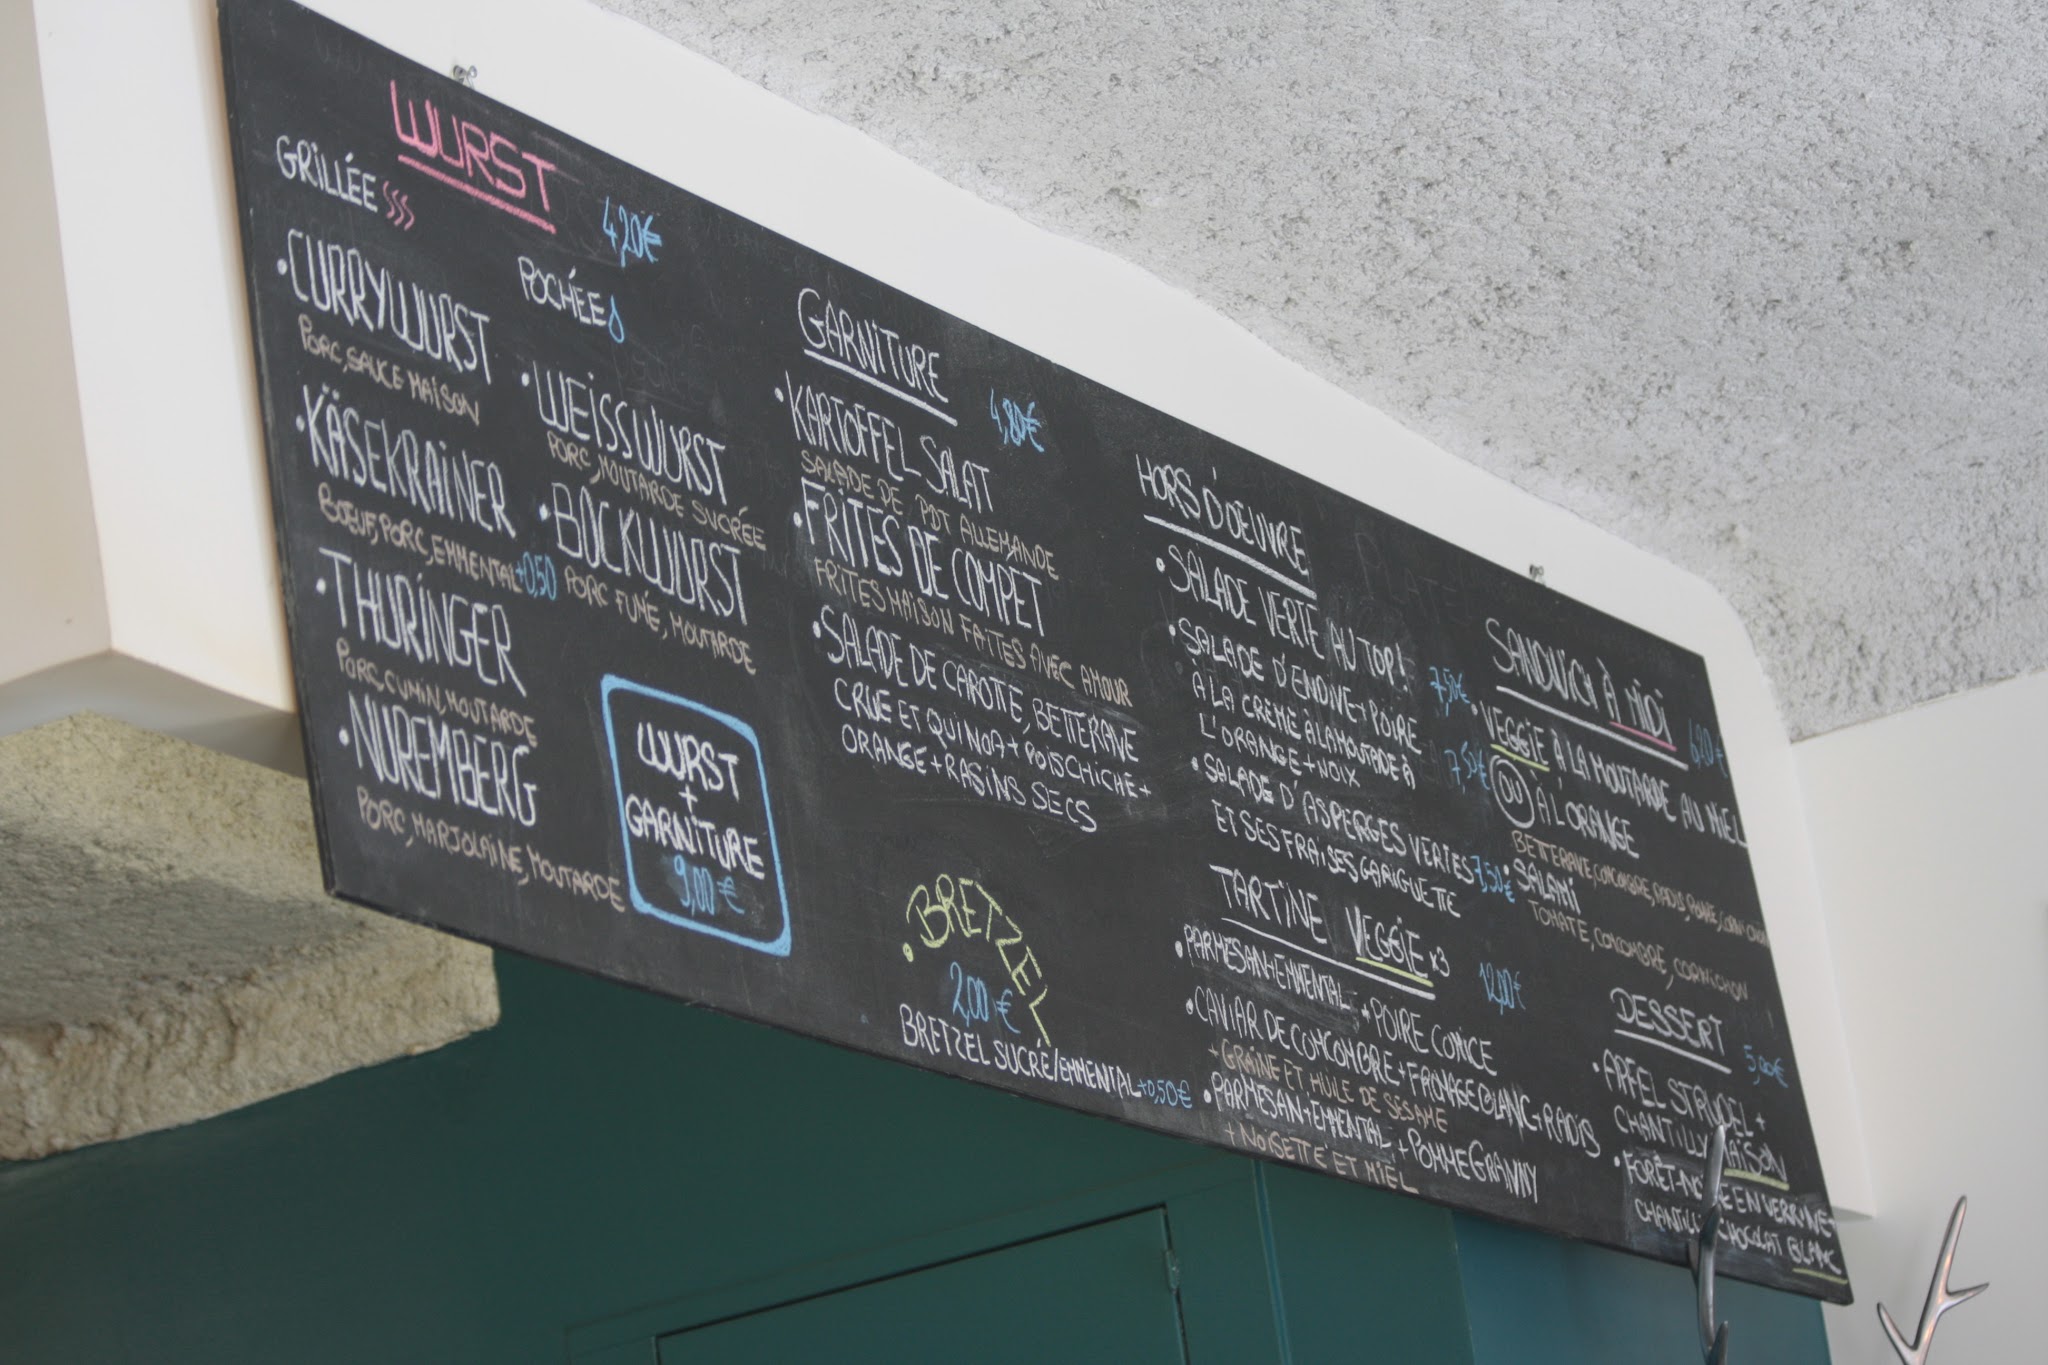 WURST
4,20€
GRILLÉE
• CURRYWURST
PORC, SAUCE MAISON
• KÄSEKRAINER
BŒUF, PORC, EMMENTAL +0,50
• THURINGER
PORC, CUMIN, MOUTARDE
• NUREMBERG
PORC, MARJOLAINE, MOUTARDE
POCHÉE
• WEISSWURST
PORC, MOUTARDE SUCRÉE
• BOCKWURST
PORC FUMÉ, MOUTARDE
WURST
+
GARNITURE
9,00€
GARNITURE
4,80€
• KARTOFFEL SALAT
SALADE DE PDT ALLEMANDE
• FRITES DE COMPET
FRITES MAISON FAITES AVEC AMOUR
• SALADE DE CAROTTE, BETTERAVE
CRUE ET QUINOA + POISCHICHE +
ORANGE + RASINS SECS
• BRETZEL
2,00€
BRETZEL SUCRÉ/EMMENTAL +0,50€
HORS D'OEUVRE
• SALADE VERTE AU TOP!
• SALADE D'ENDIVE + POIRE 7,50€
À LA CRÈME A LA MOUTADE À
L'ORANGE + NOIX 7,50€
• SALADE D'ASPERGES VERTES
ET SES FRAISES GARIGUETTE 7,50€
TARTINE VEGGIE x3
12,00€
• PARMESAN + EMMENTAL + POIRE COMICE
• CAVIAR DE CONCOMBRE + FROMAGE BLANC + RADIS
+ GRAINE ET HUILE DE SESAME
• PARMESAN + EMMENTAL + POMME GRANNY
+ NOISETTE ET MIEL
SANDWICH À MIDI
6,20€
• VEGGIE À LA MOUTARDE AU MIEL
OU À L'ORANGE
BETTERAVE, CONCOMBRE, RADIS,
• SALAMI
TOMATE, CONCOMBRE, CORNICHON
DESSERT
5,00€
• APFEL STRUDEL +
CHANTILLY MAISON
• FORÊT-NOIRE EN VERRINE +
CHANTILLY CHOCOLAT BLANC